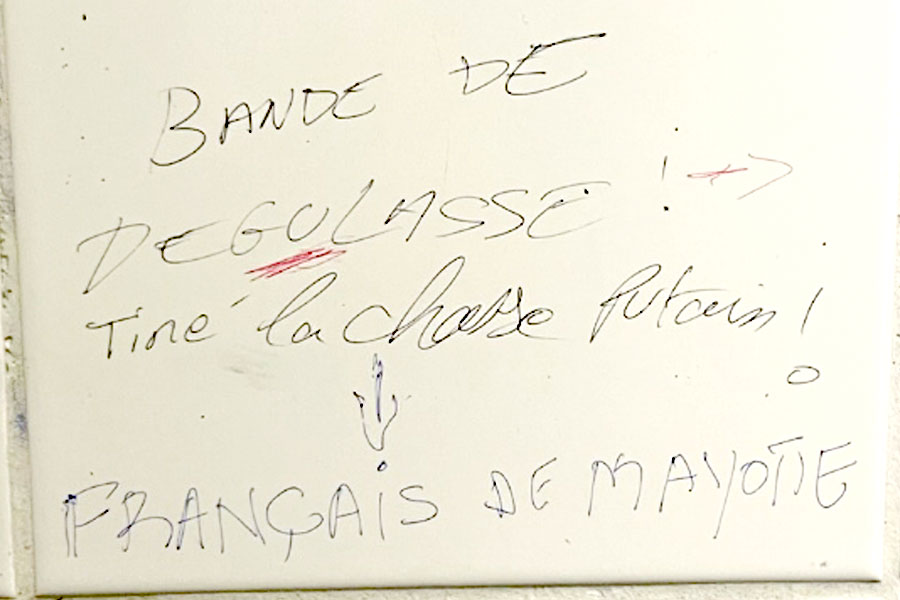 BANDE DE
DEGULASSE !
Tiré la chasse Putain !
FRANÇAiS DE MAYOTTE